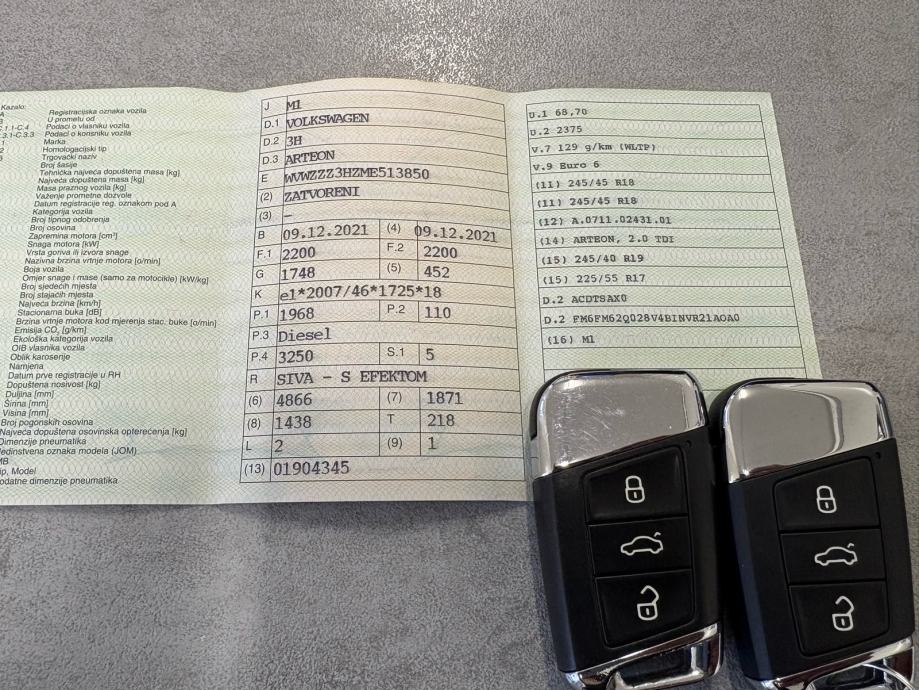 Kazalo:
A Registracijska oznaka vozila
B U prometu od
C.1.1-C.4 Podaci o vlasniku vozila
C.3.1-C.3.3 Podaci o korisniku vozila
Marka
Homologacijski tip
Trgovački naziv
Broj šasije
Tehnička najveća dopuštena masa [kg]
Najveća dopuštena masa [kg]
Masa praznog vozila [kg]
Važenje prometne dozvole
Datum registracije reg. oznakom pod A
Kategorija vozila
Broj tipnog odobrenja
Broj osovina
Zapremina motora [cm³]
Snaga motora [kW]
Vrsta goriva ili izvora snage
Nazivna brzina vrtnje motora [o/min]
Boja vozila
Omjer snage i mase (samo za motocikle) [kW/kg]
Broj sjedećih mjesta
Broj stajaćih mjesta
Najveća brzina [km/h]
Stacionarna buka [dB]
Brzina vrtnje motora kod mjerenja stac. buke [o/min]
Emisija CO₂ [g/km]
Ekološka kategorija vozila
OIB vlasnika vozila
Oblik karoserije
Namjena
Datum prve registracije u RH
Dopuštena nosivost [kg]
Duljina [mm]
Širina [mm]
Visina [mm]
Broj pogonskih osovina
Najveća dopuštena osovinska opterećenja [kg]
Dimenzije pneumatika
Jedinstvena oznaka modela (JOM)
MB
Tip, Model
Dodatne dimenzije pneumatika
J M1
D.1 VOLKSWAGEN
D.2 3H
D.3 ARTEON
E WVWZZZ3HZME513850
(2) ZATVORENI
(3) –
B 09.12.2021 (4) 09.12.2021
F.1 2200 F.2 2200
G 1748 (5) 452
K e1*2007/46*1725*18
P.1 1968 P.2 110
P.3 Diesel
P.4 3250 S.1 5
R SIVA - S EFEKTOM
(6) 4866 (7) 1871
(8) 1438 T 218
L 2 (9) 1
(13) 01904345
U.1 68,70
U.2 2375
V.7 129 g/km (WLTP)
V.9 Euro 6
(11) 245/45 R18
(11) 245/45 R18
(12) A.0711.02431.01
(14) ARTEON, 2.0 TDI
(15) 245/40 R19
(15) 225/55 R17
D.2 ACDTSAX0
D.2 FM6FM62Q028V4BINVR21AOA0
(16) M1